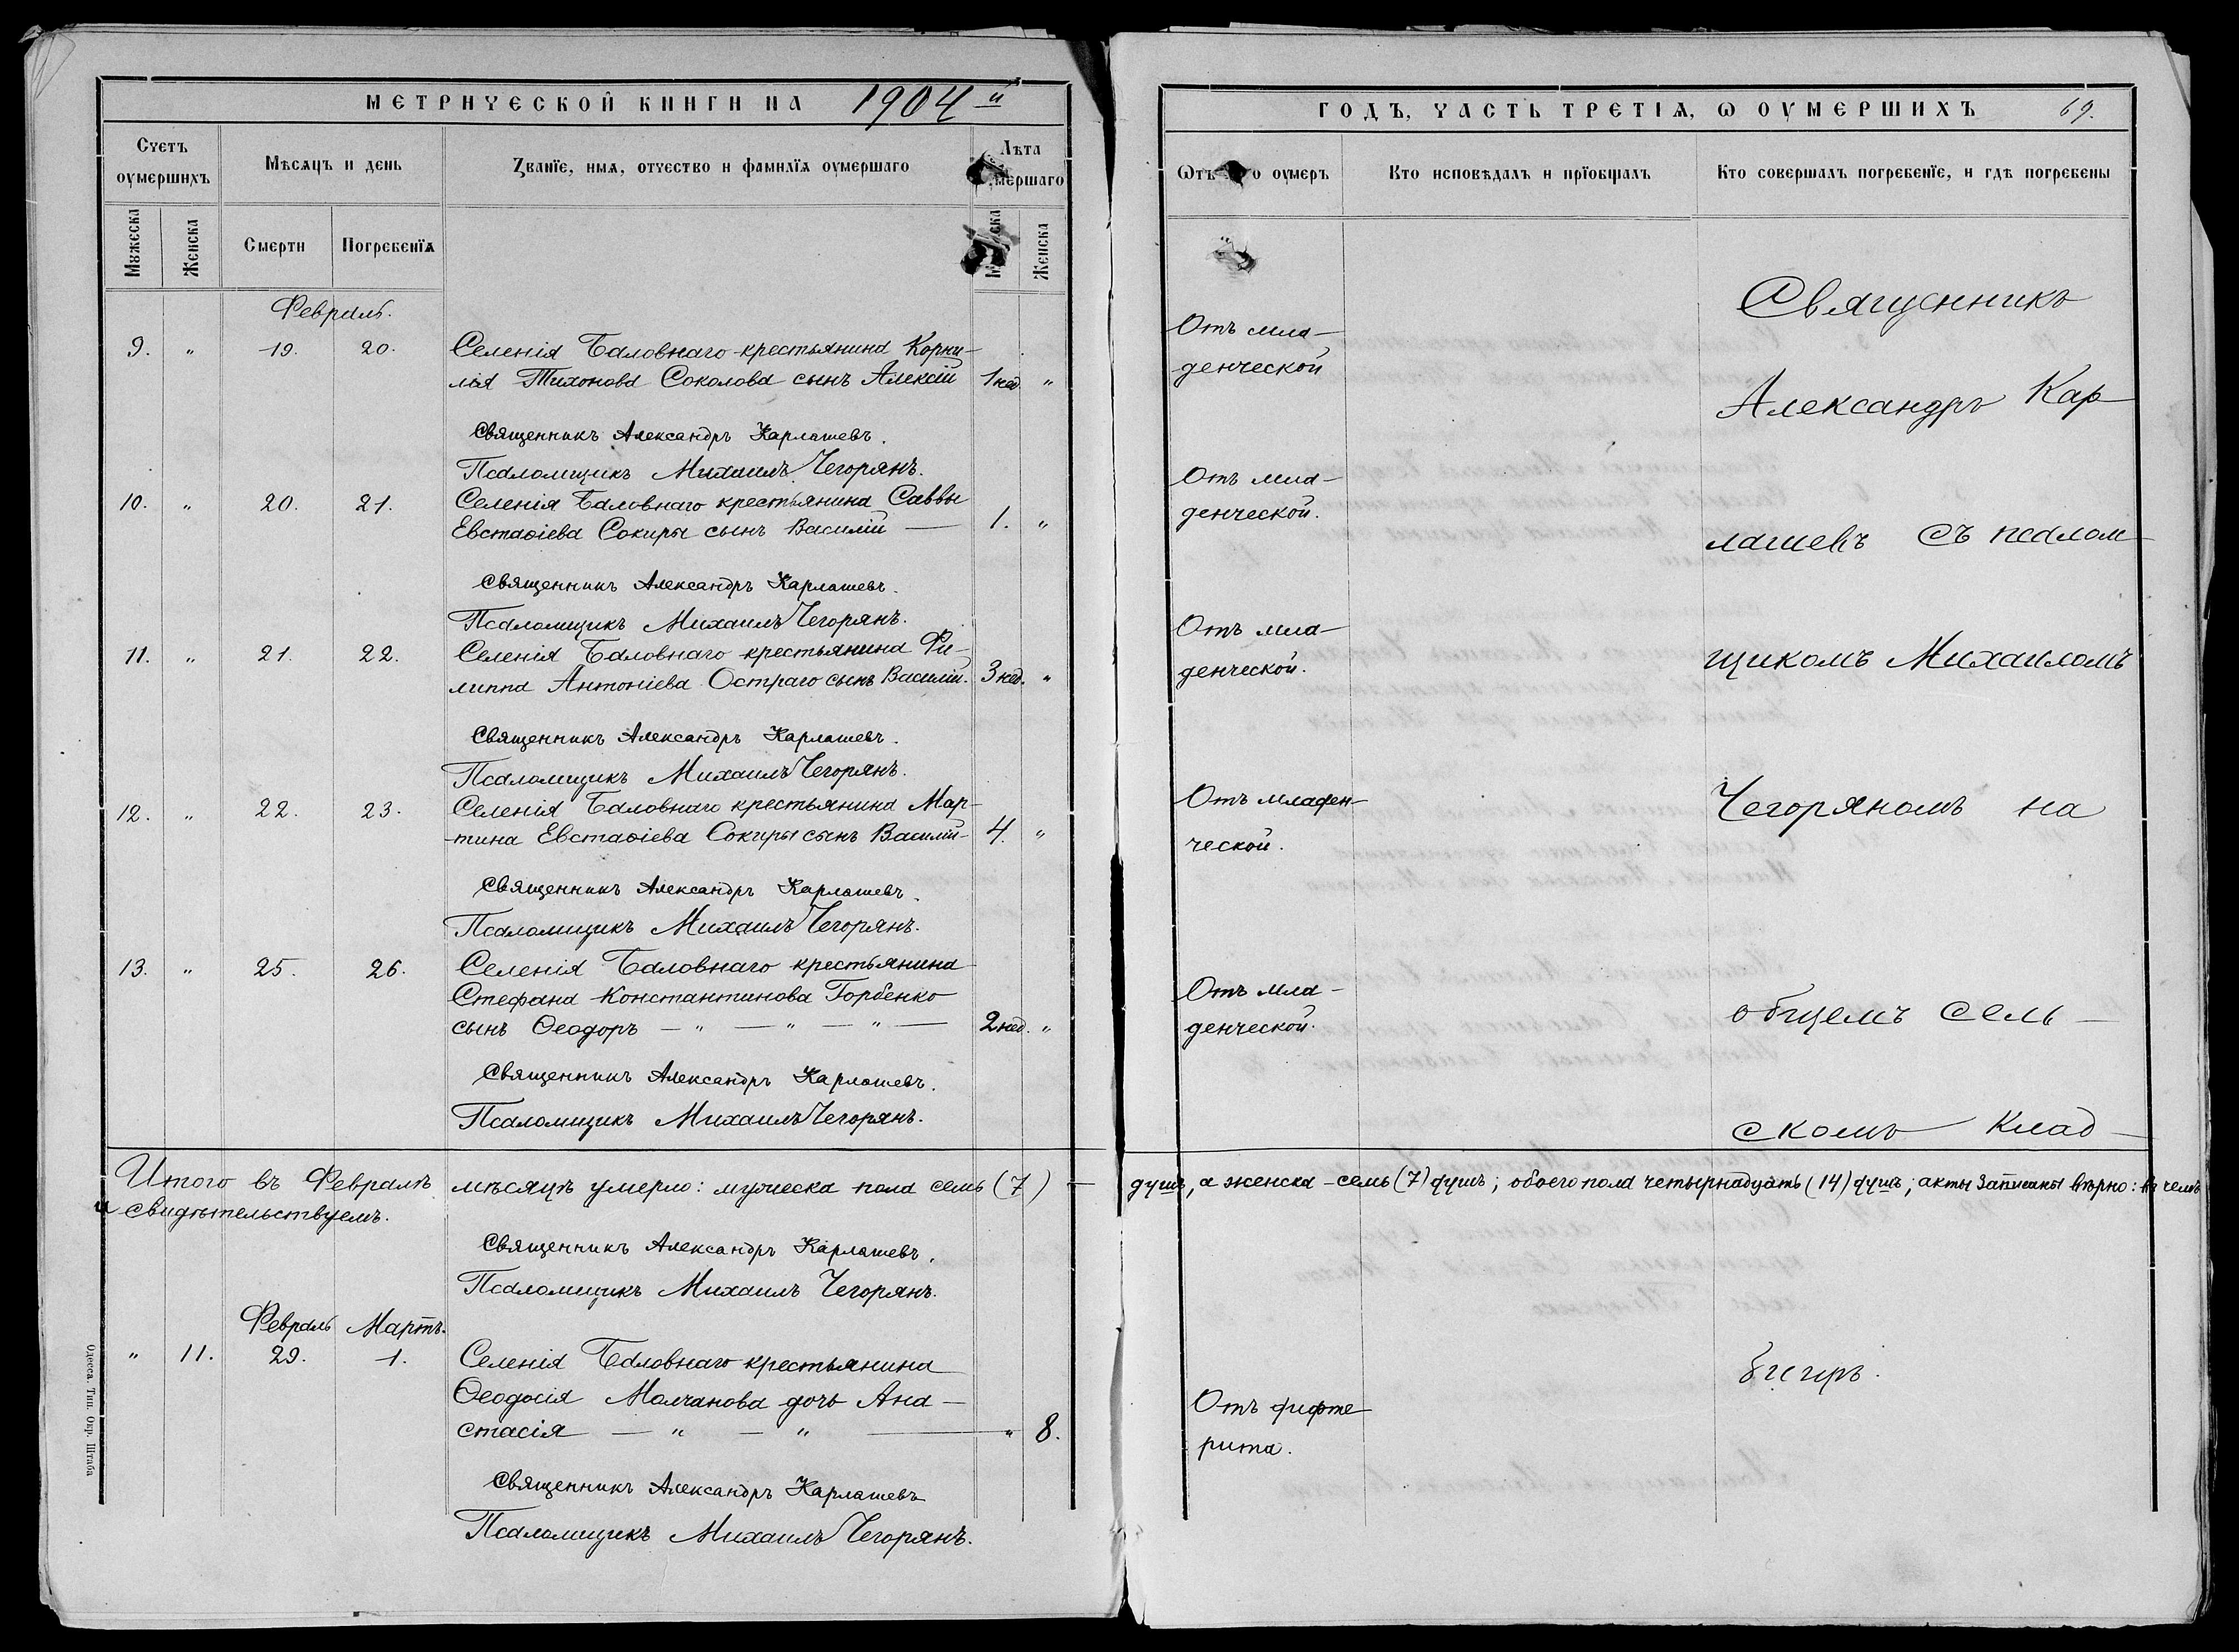 МЕТРИЧЕСКОЙ КНИГИ НА 1904 й
Счетъ оумершихъ
Мѣсяцъ и день
Званїе, имя, отчество и фамилїя оумершаго
Лѣта
Мужеска
Женска
Смерти
Погребенїя
Женска
Февраль.
9. " 19. 20. Селенія Баловнаго крестьянина Корни-
лія Тихонова Соколова сынъ Алексій 1 нед. "
Священникъ Александръ Карлашевъ.
Псаломщикъ Михаилъ Чегорянъ.
10. " 20. 21. Селенія Баловнаго крестьянина Саввы
Евстаѳіева Сокиры сынъ Василій — 1. "
Священникъ Александръ Карлашевъ.
Псаломщикъ Михаилъ Чегорянъ.
11. " 21. 22. Селенія Баловнаго крестьянина Фи-
липпа Антоніева Остраго сынъ Василій. 3 нед. "
Священникъ Александръ Карлашевъ.
Псаломщикъ Михаилъ Чегорянъ.
12. " 22. 23. Селенія Баловнаго крестьянина Мар-
тина Евстаѳіева Сокиры сынъ Василій- 4. "
Священникъ Александръ Карлашевъ.
Псаломщикъ Михаилъ Чегорянъ.
13. " 25. 26. Селенія Баловнаго крестьянина
Стефана Константинова Горбенко
сынъ Ѳеодоръ — " — " — " — 2 нед. "
Священникъ Александръ Карлашевъ.
Псаломщикъ Михаилъ Чегорянъ.
Итого въ Февралѣ мѣсяцѣ умерло: мужеска пола семь (7) —
и свидѣтельствуемъ.
Священникъ Александръ Карлашевъ.
Псаломщикъ Михаилъ Чегорянъ.
Февраль Мартъ.
" 11. 29. 1. Селенія Баловнаго крестьянина
Ѳеодосія Молчанова дочь Ана-
стасія — " — " — " 8.
Священникъ Александръ Карлашевъ
Псаломщикъ Михаилъ Чегорянъ.
Одесса. Тип. Окр. Штаба
ГОДЪ, ЧАСТЬ ТРЕТІЯ, Ѡ ОУМЕРШИХЪ 69.
Ѿтъ оумеръ
Кто исповѣдалъ и прїобщалъ
Кто совершалъ погребенїе, и гдѣ погребены
Отъ мла-
денческой
Отъ мла-
денческой.
Отъ мла-
денческой.
Отъ младен-
ческой.
Отъ мла-
денческой.
Священникъ
Александръ Кар-
лашевъ съ псалом-
щикомъ Михаиломъ
Чегоряномъ на
общемъ сель-
скомъ клад-
душъ, а женска - семь (7) душъ; обоего пола четырнадцать (14) душъ; акты записаны вѣрно: въ чемъ
бищѣ.
Отъ дифте
рита.